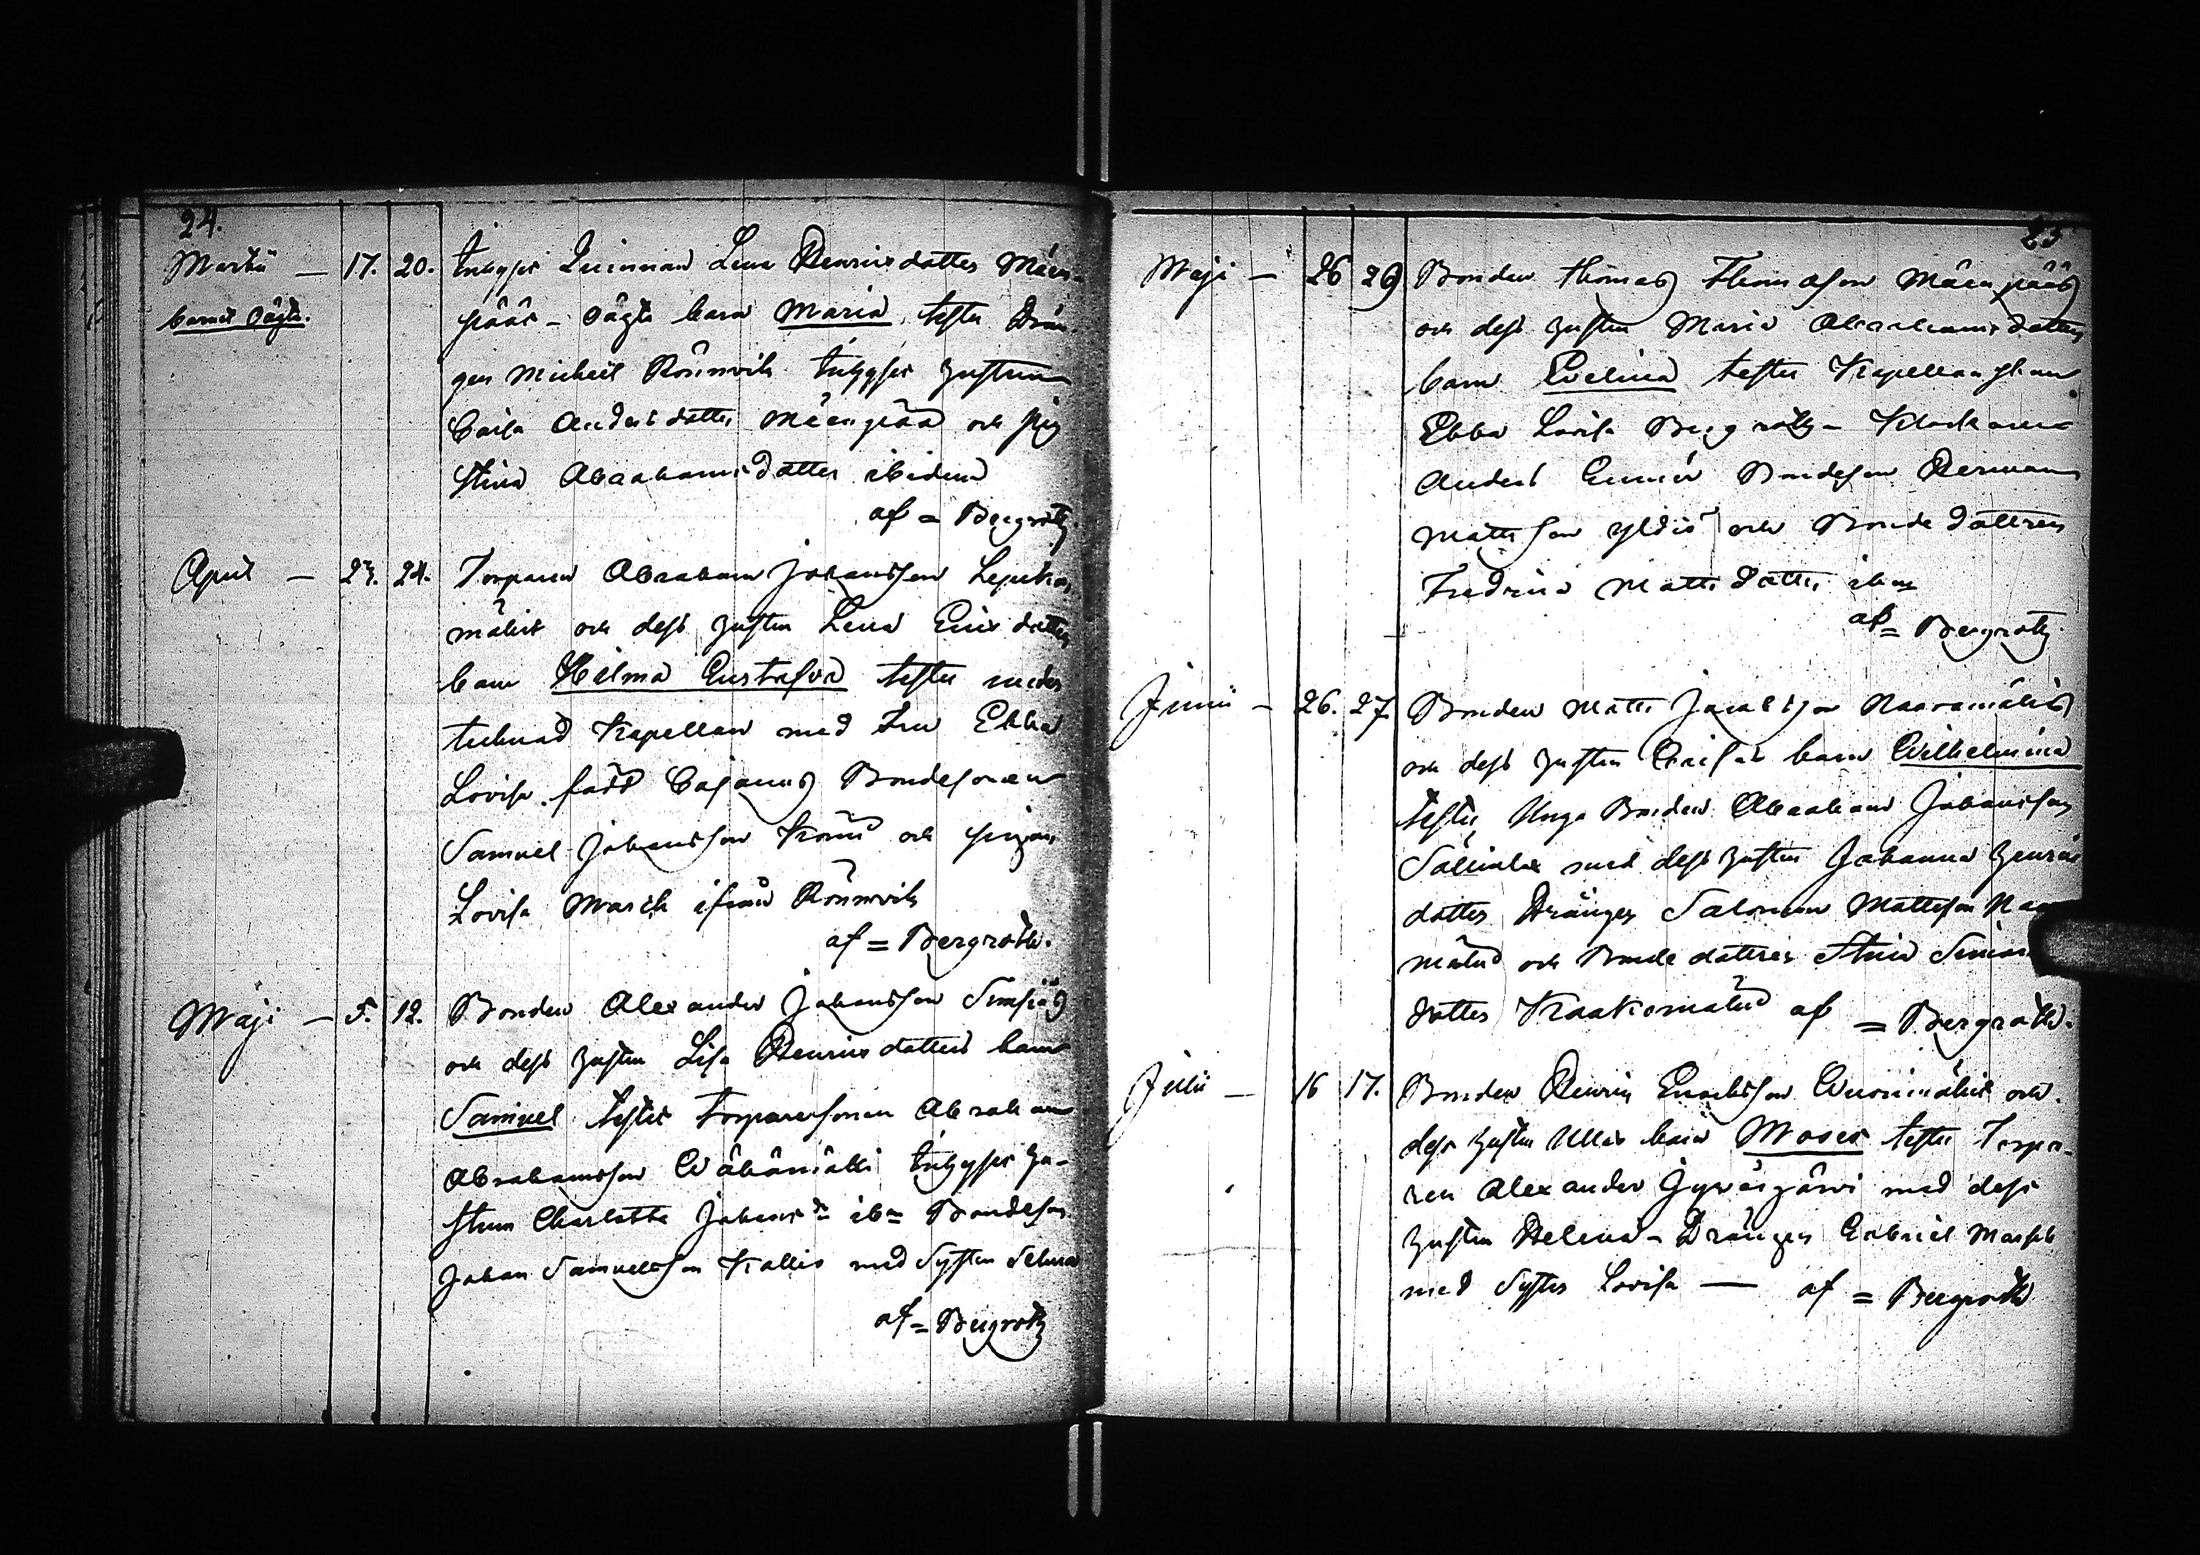 24.
Martii — 17. 20. Inhyses Quinnan Lena Henricsdotter Mäen-
barnet oägta.
pääs - oägta barn Maria, testes Drän
gen Michael Rönnvik Inhyses hustrun
Caisa Andersdotter Mäenpää och pig
Stina Abrahamsdotter ibidem
af = Bergroth
April — 23. 24. Torparen Abraham Johansson
mäkis och dess hustru Lena Ericsdotters
barn Hilma Gustafva testes undertecknad Kapellan med Fru Ebba
Lovisa född Cajanus Bondesonen
Samuel Johansson och pigan
Lovisa Marck ifrån Rönnvik
af = Bergroth.
Maji — 5. 12. Bonden Alexander Johansson
och dess hustru Lisa Henricsdotters barn
Samuel testes Torparesonen Abraham
Abrahamsson Inhyses hu-
strun Charlotta Johansdr ibm Bondeson
Johan Samuelsson Kallio med Syster Selma
af = Bergroth
25
Maji — 26 29 Bonden Thomas Thomasson Mäenpääs
och dess hustru Maria Abrahamsdotters
barn Evelina testes Kapellanskan
Ebba Lovisa Bergroth - Klockaren
Anders Bondeson Herman
Mattsson och Bonde dottren
Fredrica Mattsdotter ibm
af = Bergroth
Junii — 26. 27. Bonden Matts Jacobsson
och dess hustru Caisas barn Wilhelmina
testes, Unga Bonden Abraham Johansson
med dess hustru Johanna Henrics
dotter Drängen Salomon Mattsson
och Bonde dottren Stina Simons
dotter af = Bergroth.
Julii — 16 17. Bonden Henric Enochsson och
dess hustru Ullas barn Moses testes Torpa-
ren Alexander Jyväsjärvi med dess
hustru Helena - Drängen Gabriel Marck
med Syster Lovisa — af = Bergroth